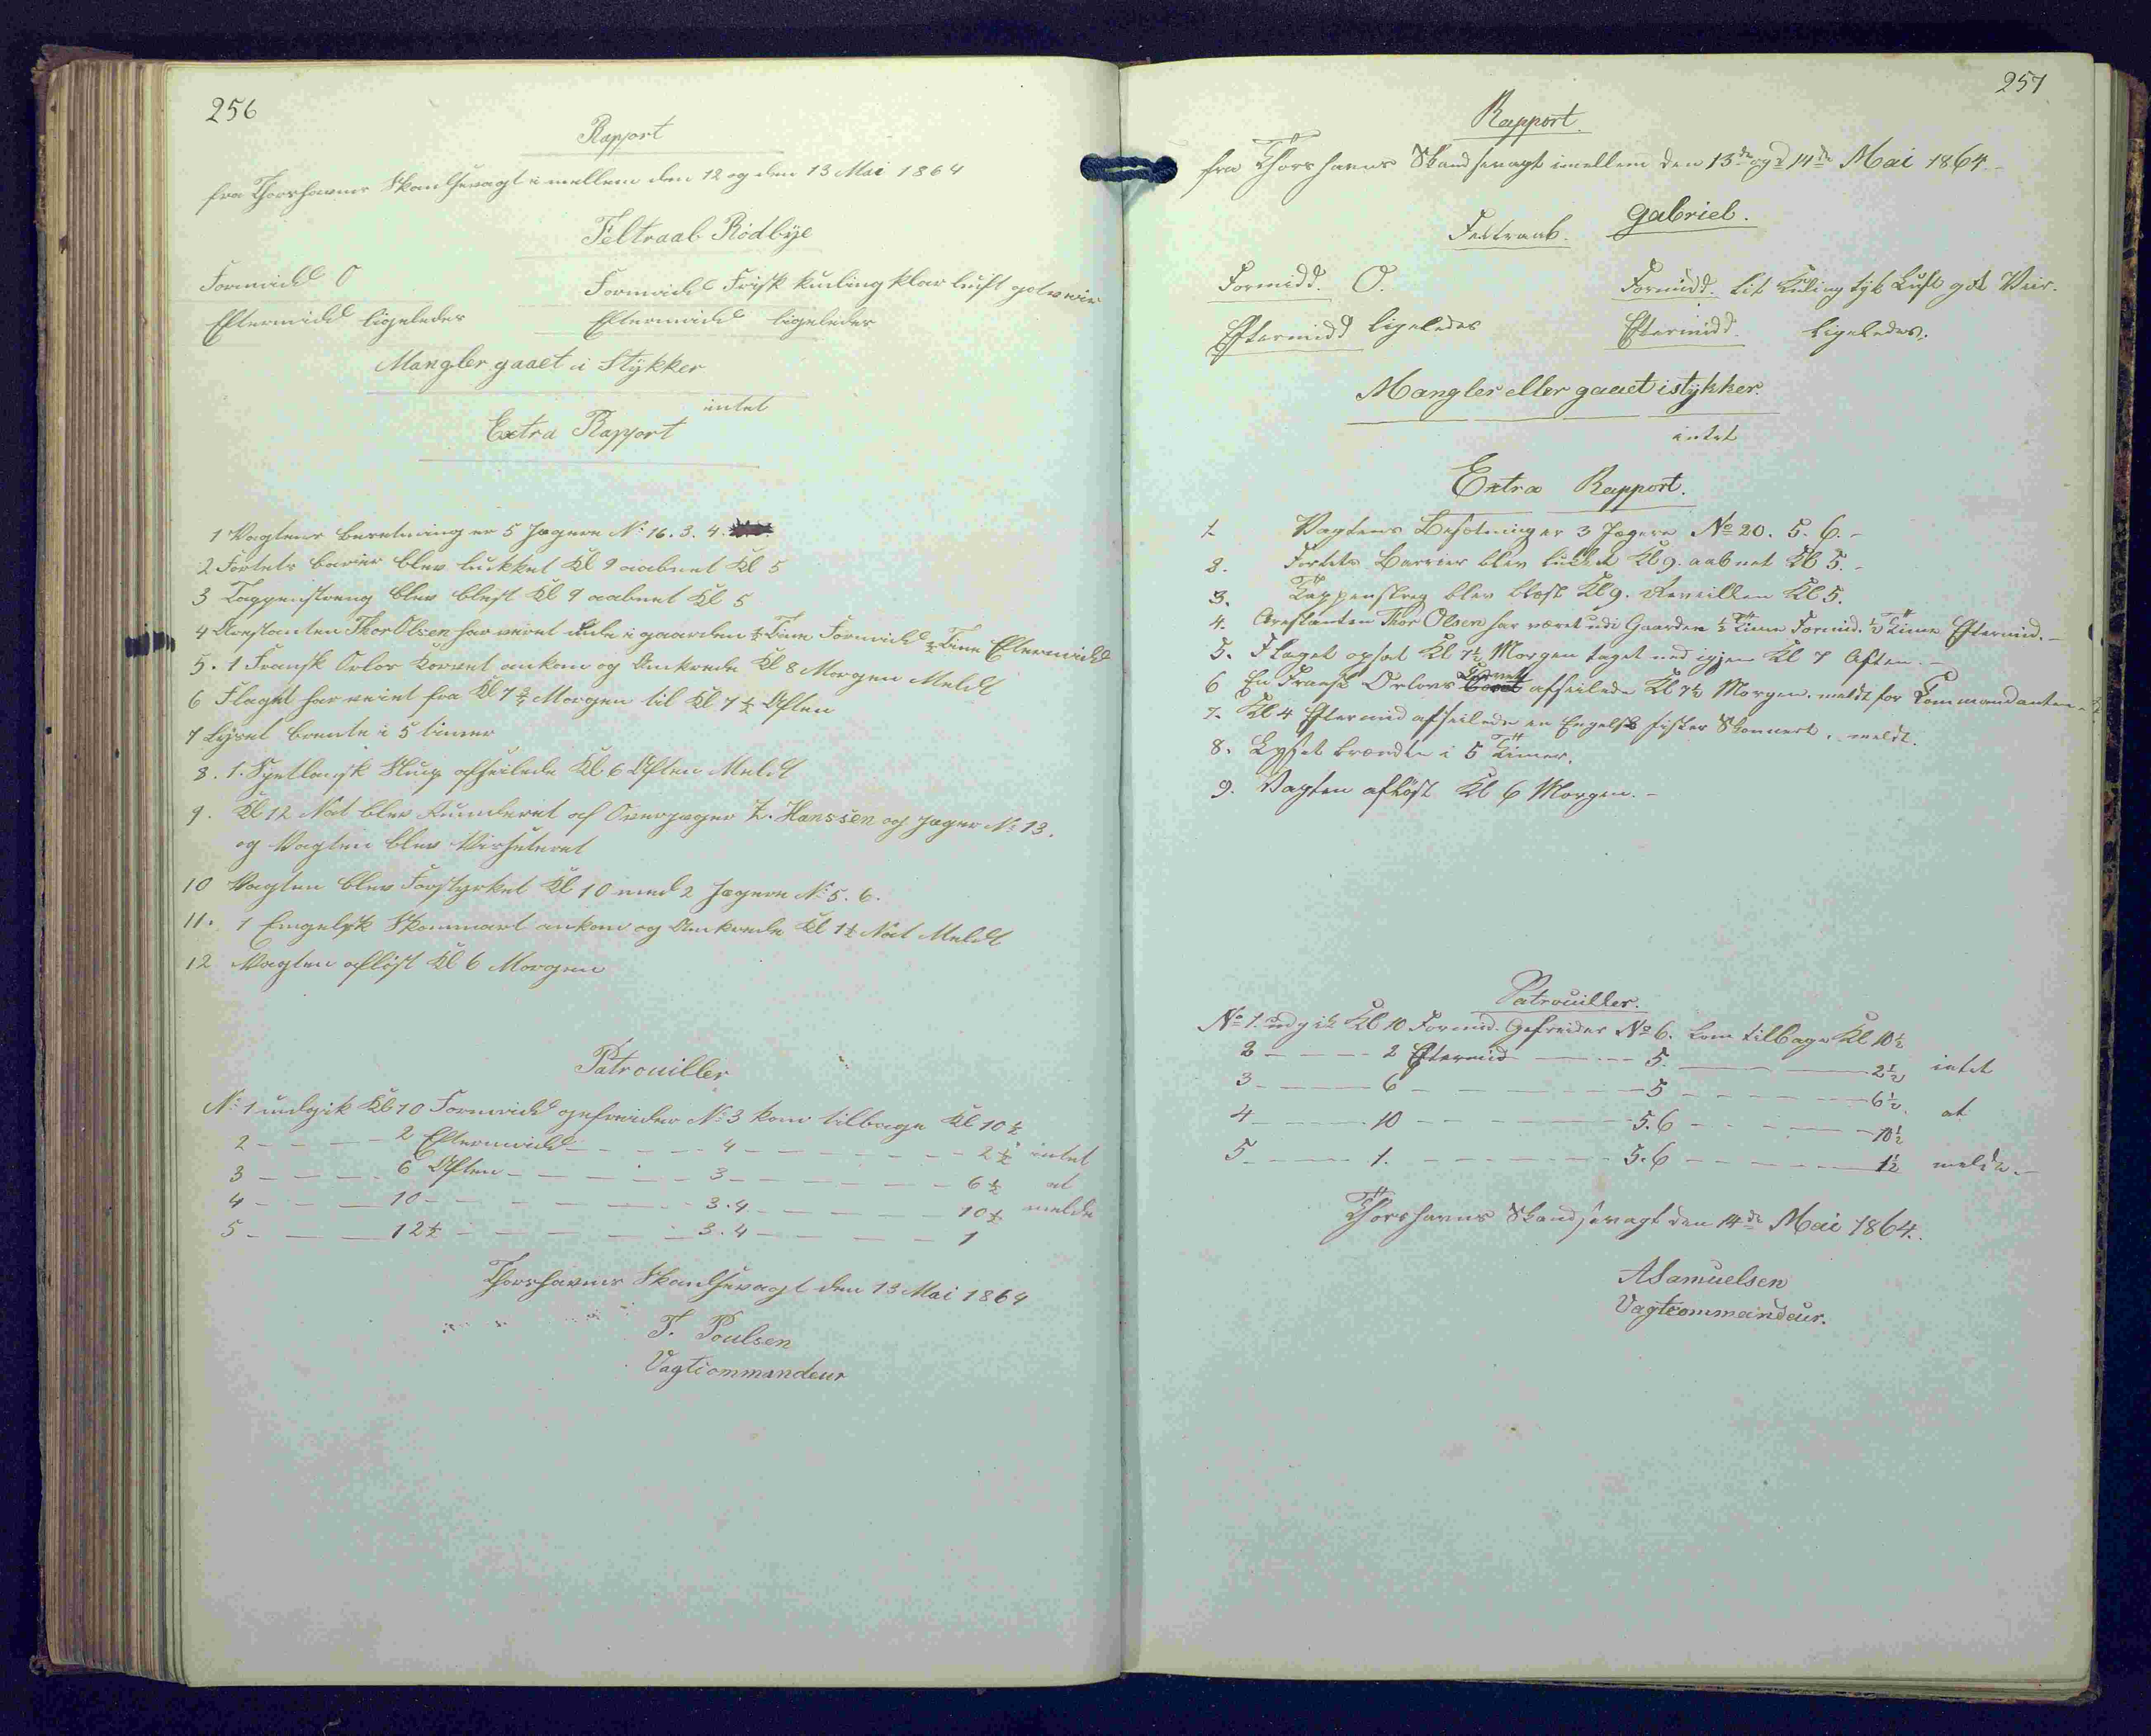 256
Rapport
fra Thorshavns Skandsevagt imellem den 12 og den 13 Mai 1864
Feltraab Rödbÿe
Formidd O
Formidd Frisk kuling klar luft got veir
Eftermidd ligeledes
Eftermidd ligeledes
Mangler gaaet i Stÿkker
intet
Extra Rapport
1 Vagtens besetning er 5 Jægere No 16. 3. 4.
2 Fortets barier blev lukket Kl 9 aabnet Kl 5
3 Tappenstreng blev blest Kl 9 aabnet Kl 5
4 Arestanten Thor Olsen har veret ude i gaarden ½ Time Formidd ½ Time Eftermidd
5. 1 Fransk Orlos Korvet ankom og Ankrede Kl 8 Morgen Meldt
6 Flaget har veiet fra Kl 7½ Morgen til Kl 7½ Aften
7 Lÿset brente i 5 timer
8. 1. Syetlansk Slup afseilede Kl 6 Aften Meldt
9. Kl 12 Nat blev Runderet af Overjæger Z. Hanssen og Jæger No 13.
og Vagten blev Visenteret
10 Vagten blev Forstyrket Kl 10 med 2 Jægere No 5. 6.
11. 1 Engelsk Skonnart ankom og Ankrede Kl 1½ Nat Meldt
12 Vagten aflöst Kl 6 Morgen
Patrouiller
No 1 udgik Kl 10 Formidd gefreider No 3 kom tilbage Kl 10½
2 - - - - 2 Eftermidd - - - - 4 - - - - 2½ intet
3 - - - - 6 Aften - - - - 3 - - - - 6½ at
4 - - - - 10 - - - - 3.4 - - - - 10½ melde
5 - - - - 12½ - - - - 3.4 - - - - 1
Thorshavns Skandsevagt den 13 Mai 1864
T. Poulsen
Vagtcommandeur
257
Rapport.
fra Thorshavns Skandsevagt imellem den 13de og 14de Mai 1864.
Feltraab. Gabriel.
Formidd. O.
Formidd. lit Kuling tyk Luft got Veir.
Eftermidd ligeledes
Eftermidd. ligeledes.
Mangler eller gaaet istÿkker.
intet
Extra Rapport.
1. Vagtens Besetning er 3 Jægere No 20. 5. 6.-
2. Fortets Barrier blev lukket Kl 9. aabnet Kl 5.-
3. Tappenstreg blev blæst Kl 9. Reveillen Kl 5.
4. Arestanten Thor Olsen har været udi Gaarden ½ Time Formid. ½ Time Eftermid.-
5. Flaget opsat Kl 7½ Morgen taget ned igjen Kl 7 Aften.-
6 En Fransk Orlovs Corvet afseilede Kl 7½ Morgen. meldt for Kommandanten.
7. Kl 4 Eftermid afseilede en Engelsk fisker Skonnert. meldt.
8. Lyset brændte i 5 Timer.
9. Vagten aflöst Kl 6 Morgen.-
Patrouiller.
No 1. udgik Kl 10 Formid. Gefreider No 6. kom tilbage Kl 10½
2 - - - - 2 Eftermid - - - - 5. - - - - 2½ intet
3 - - - - 6 - - - - 5 - - - - 6½. at
4 - - - - 10 - - - - 5.6 - - - - 10½
5 - - - - 1. - - - - 5.6 - - - - 1½ melde.-
Thorshavns Skandsevagt den 14de Mai 1864.
ASamuelsen
Vagtcommandeur.